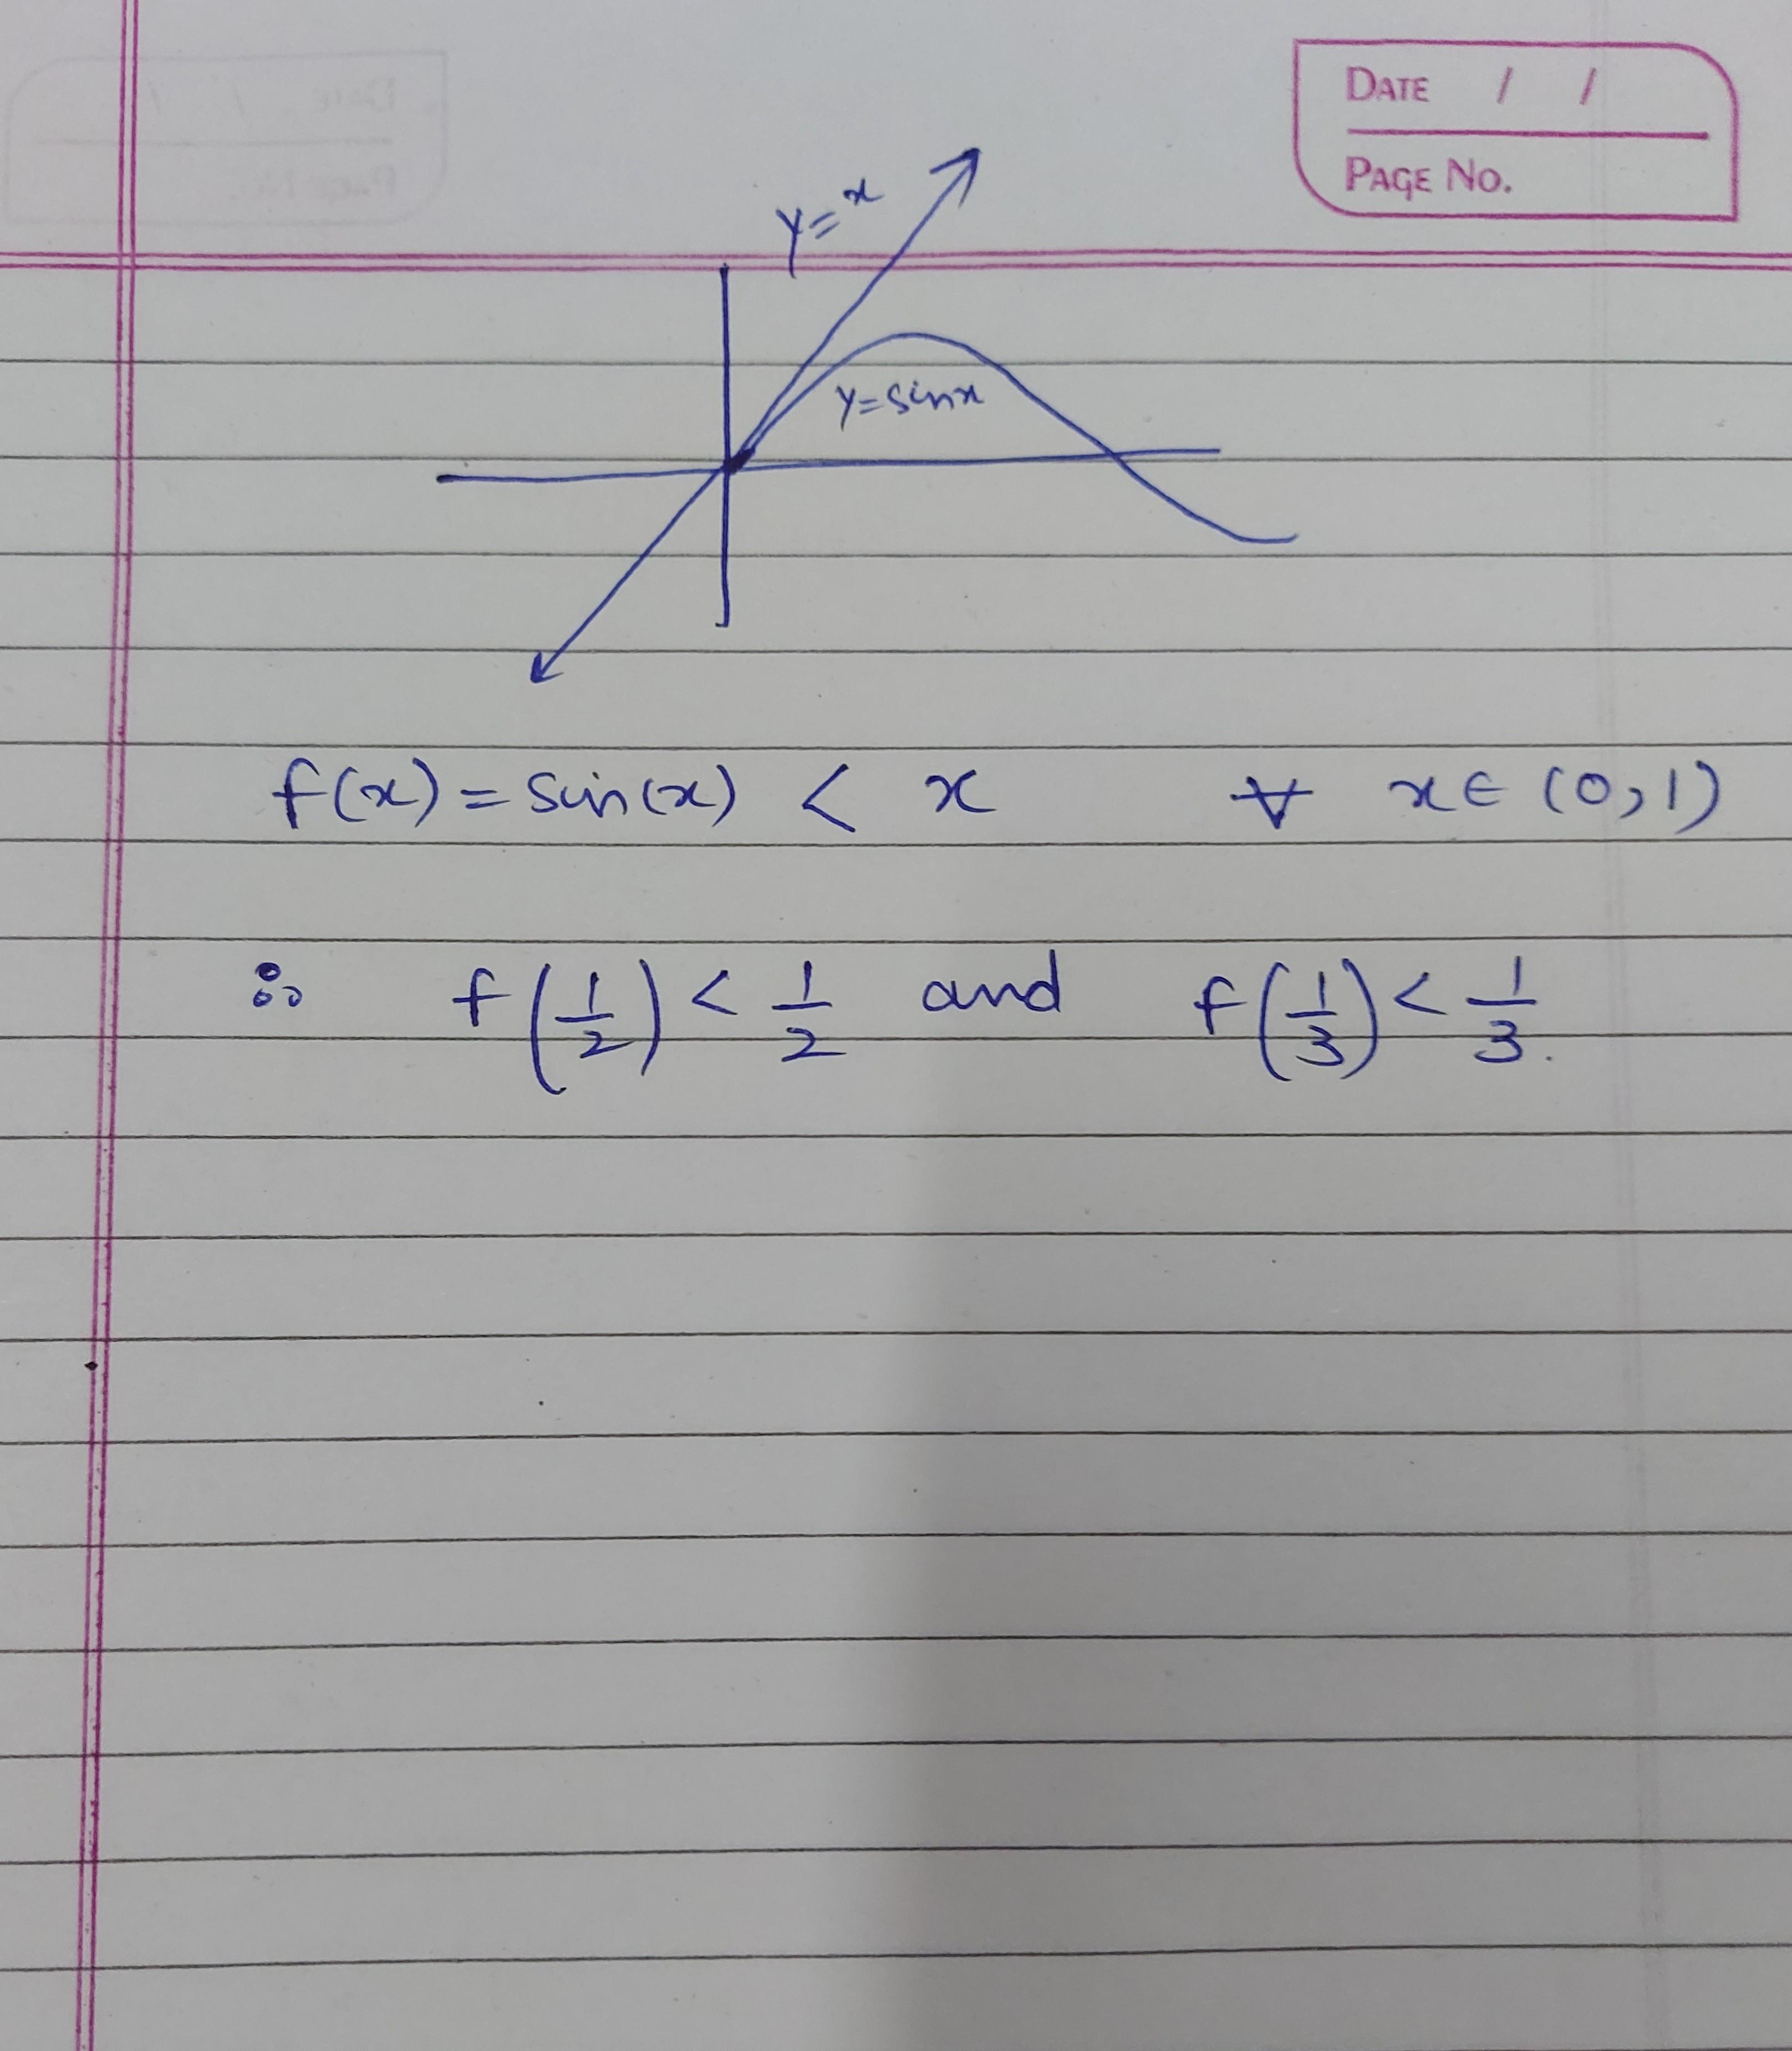 DATE / /
PAGE NO.
y = x
y = sinx
f(x) = sin(x) < x ∀ x ∈ (0,1)
∴ f(1/2) < 1/2 and f(1/3) < 1/3.